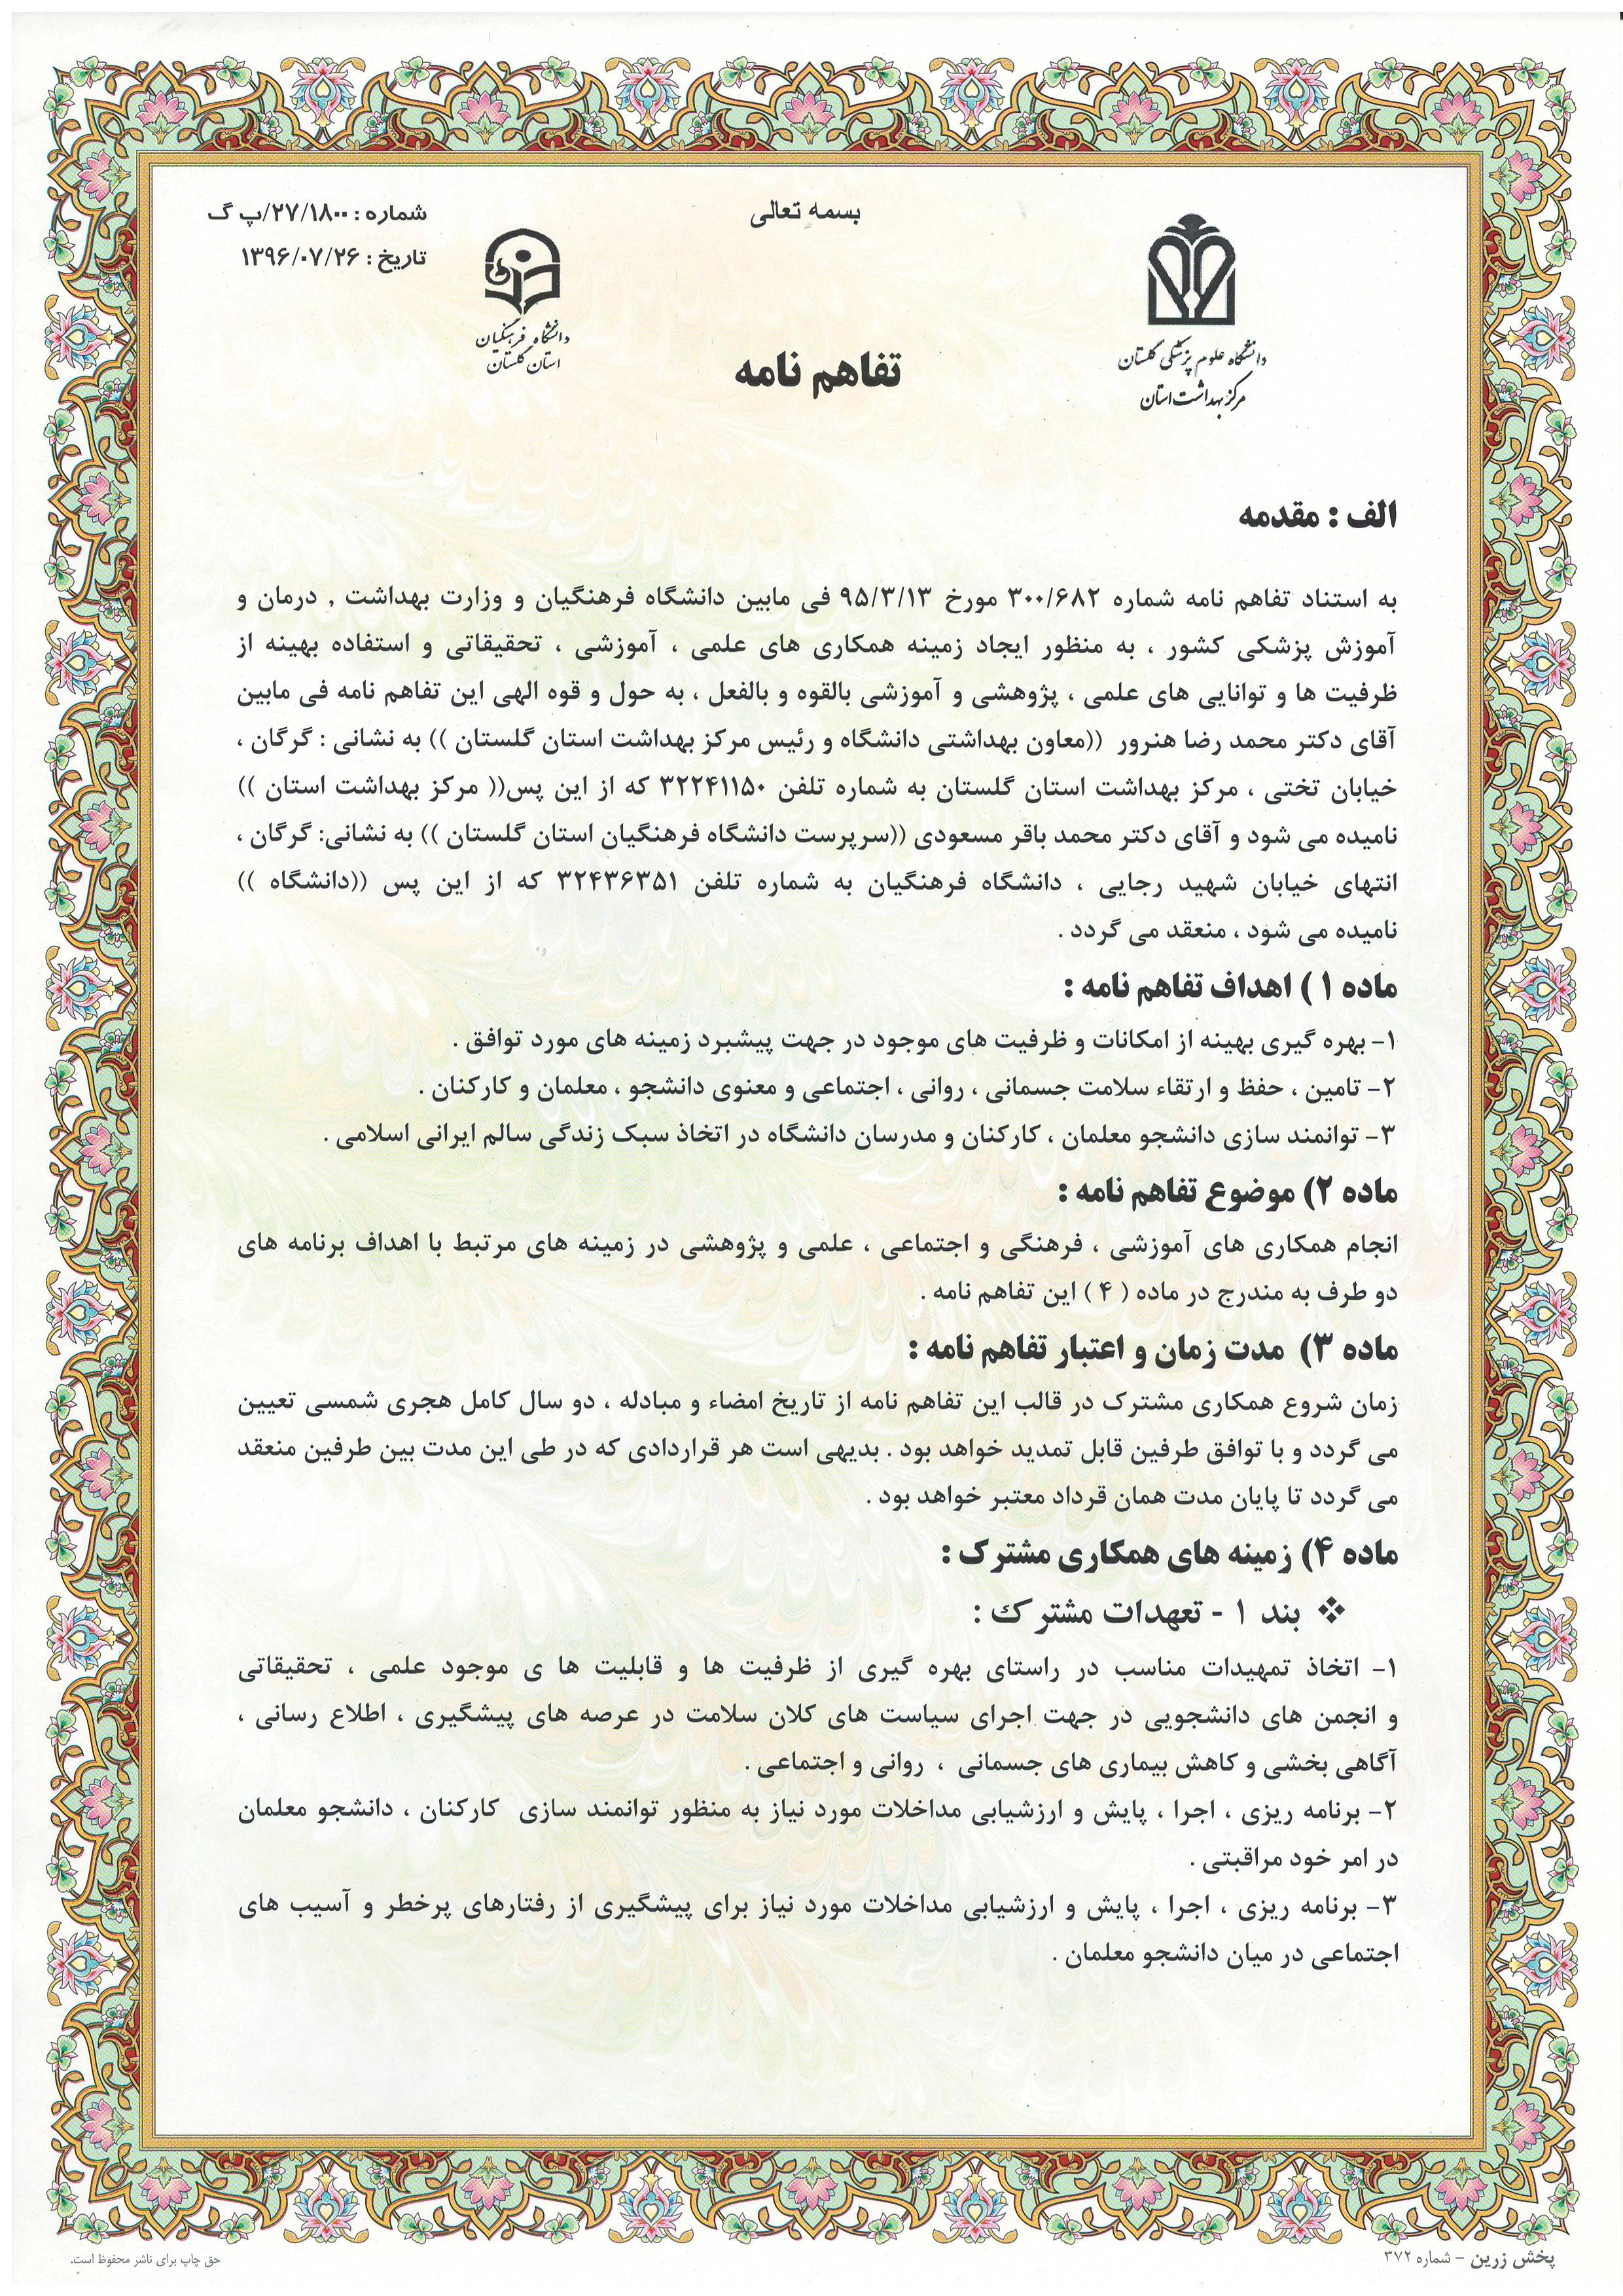 بسمه تعالی
شماره : ۲۷/۱۸۰۰/پ گ
تاریخ : ۱۳۹۶/۰۷/۲۶
دانشگاه علوم پزشکی گلستان
مرکز بهداشت استان
دانشگاه فرهنگیان
استان گلستان
تفاهم نامه
الف : مقدمه
به استناد تفاهم نامه شماره ۳۰۰/۶۸۲ مورخ ۹۵/۳/۱۳ فی مابین دانشگاه فرهنگیان و وزارت بهداشت , درمان و
آموزش پزشکی کشور ، به منظور ایجاد زمینه همکاری های علمی ، آموزشی ، تحقیقاتی و استفاده بهینه از
ظرفیت ها و توانایی های علمی ، پژوهشی و آموزشی بالقوه و بالفعل ، به حول و قوه الهی این تفاهم نامه فی مابین
آقای دکتر محمد رضا هنرور ((معاون بهداشتی دانشگاه و رئیس مرکز بهداشت استان گلستان )) به نشانی : گرگان ،
خیابان تختی ، مرکز بهداشت استان گلستان به شماره تلفن ۳۲۲۴۱۱۵۰ که از این پس(( مرکز بهداشت استان ))
نامیده می شود و آقای دکتر محمد باقر مسعودی ((سرپرست دانشگاه فرهنگیان استان گلستان )) به نشانی: گرگان ،
انتهای خیابان شهید رجایی ، دانشگاه فرهنگیان به شماره تلفن ۳۲۴۳۶۳۵۱ که از این پس ((دانشگاه ))
نامیده می شود ، منعقد می گردد .
ماده ۱ ) اهداف تفاهم نامه :
۱- بهره گیری بهینه از امکانات و ظرفیت های موجود در جهت پیشبرد زمینه های مورد توافق .
۲- تامین ، حفظ و ارتقاء سلامت جسمانی ، روانی ، اجتماعی و معنوی دانشجو ، معلمان و کارکنان .
۳- توانمند سازی دانشجو معلمان ، کارکنان و مدرسان دانشگاه در اتخاذ سبک زندگی سالم ایرانی اسلامی .
ماده ۲) موضوع تفاهم نامه :
انجام همکاری های آموزشی ، فرهنگی و اجتماعی ، علمی و پژوهشی در زمینه های مرتبط با اهداف برنامه های
دو طرف به مندرج در ماده ( ۴ ) این تفاهم نامه .
ماده ۳) مدت زمان و اعتبار تفاهم نامه :
زمان شروع همکاری مشترک در قالب این تفاهم نامه از تاریخ امضاء و مبادله ، دو سال کامل هجری شمسی تعیین
می گردد و با توافق طرفین قابل تمدید خواهد بود . بدیهی است هر قراردادی که در طی این مدت بین طرفین منعقد
می گردد تا پایان مدت همان قرداد معتبر خواهد بود .
ماده ۴) زمینه های همکاری مشترک :
❖ بند ۱ - تعهدات مشترک :
۱- اتخاذ تمهیدات مناسب در راستای بهره گیری از ظرفیت ها و قابلیت ها ی موجود علمی ، تحقیقاتی
و انجمن های دانشجویی در جهت اجرای سیاست های کلان سلامت در عرصه های پیشگیری ، اطلاع رسانی ،
آگاهی بخشی و کاهش بیماری های جسمانی ، روانی و اجتماعی .
۲- برنامه ریزی ، اجرا ، پایش و ارزشیابی مداخلات مورد نیاز به منظور توانمند سازی کارکنان ، دانشجو معلمان
در امر خود مراقبتی .
۳- برنامه ریزی ، اجرا ، پایش و ارزشیابی مداخلات مورد نیاز برای پیشگیری از رفتارهای پرخطر و آسیب های
اجتماعی در میان دانشجو معلمان .
پخش زرین - شماره ۳۷۲
حق چاپ برای ناشر محفوظ است.